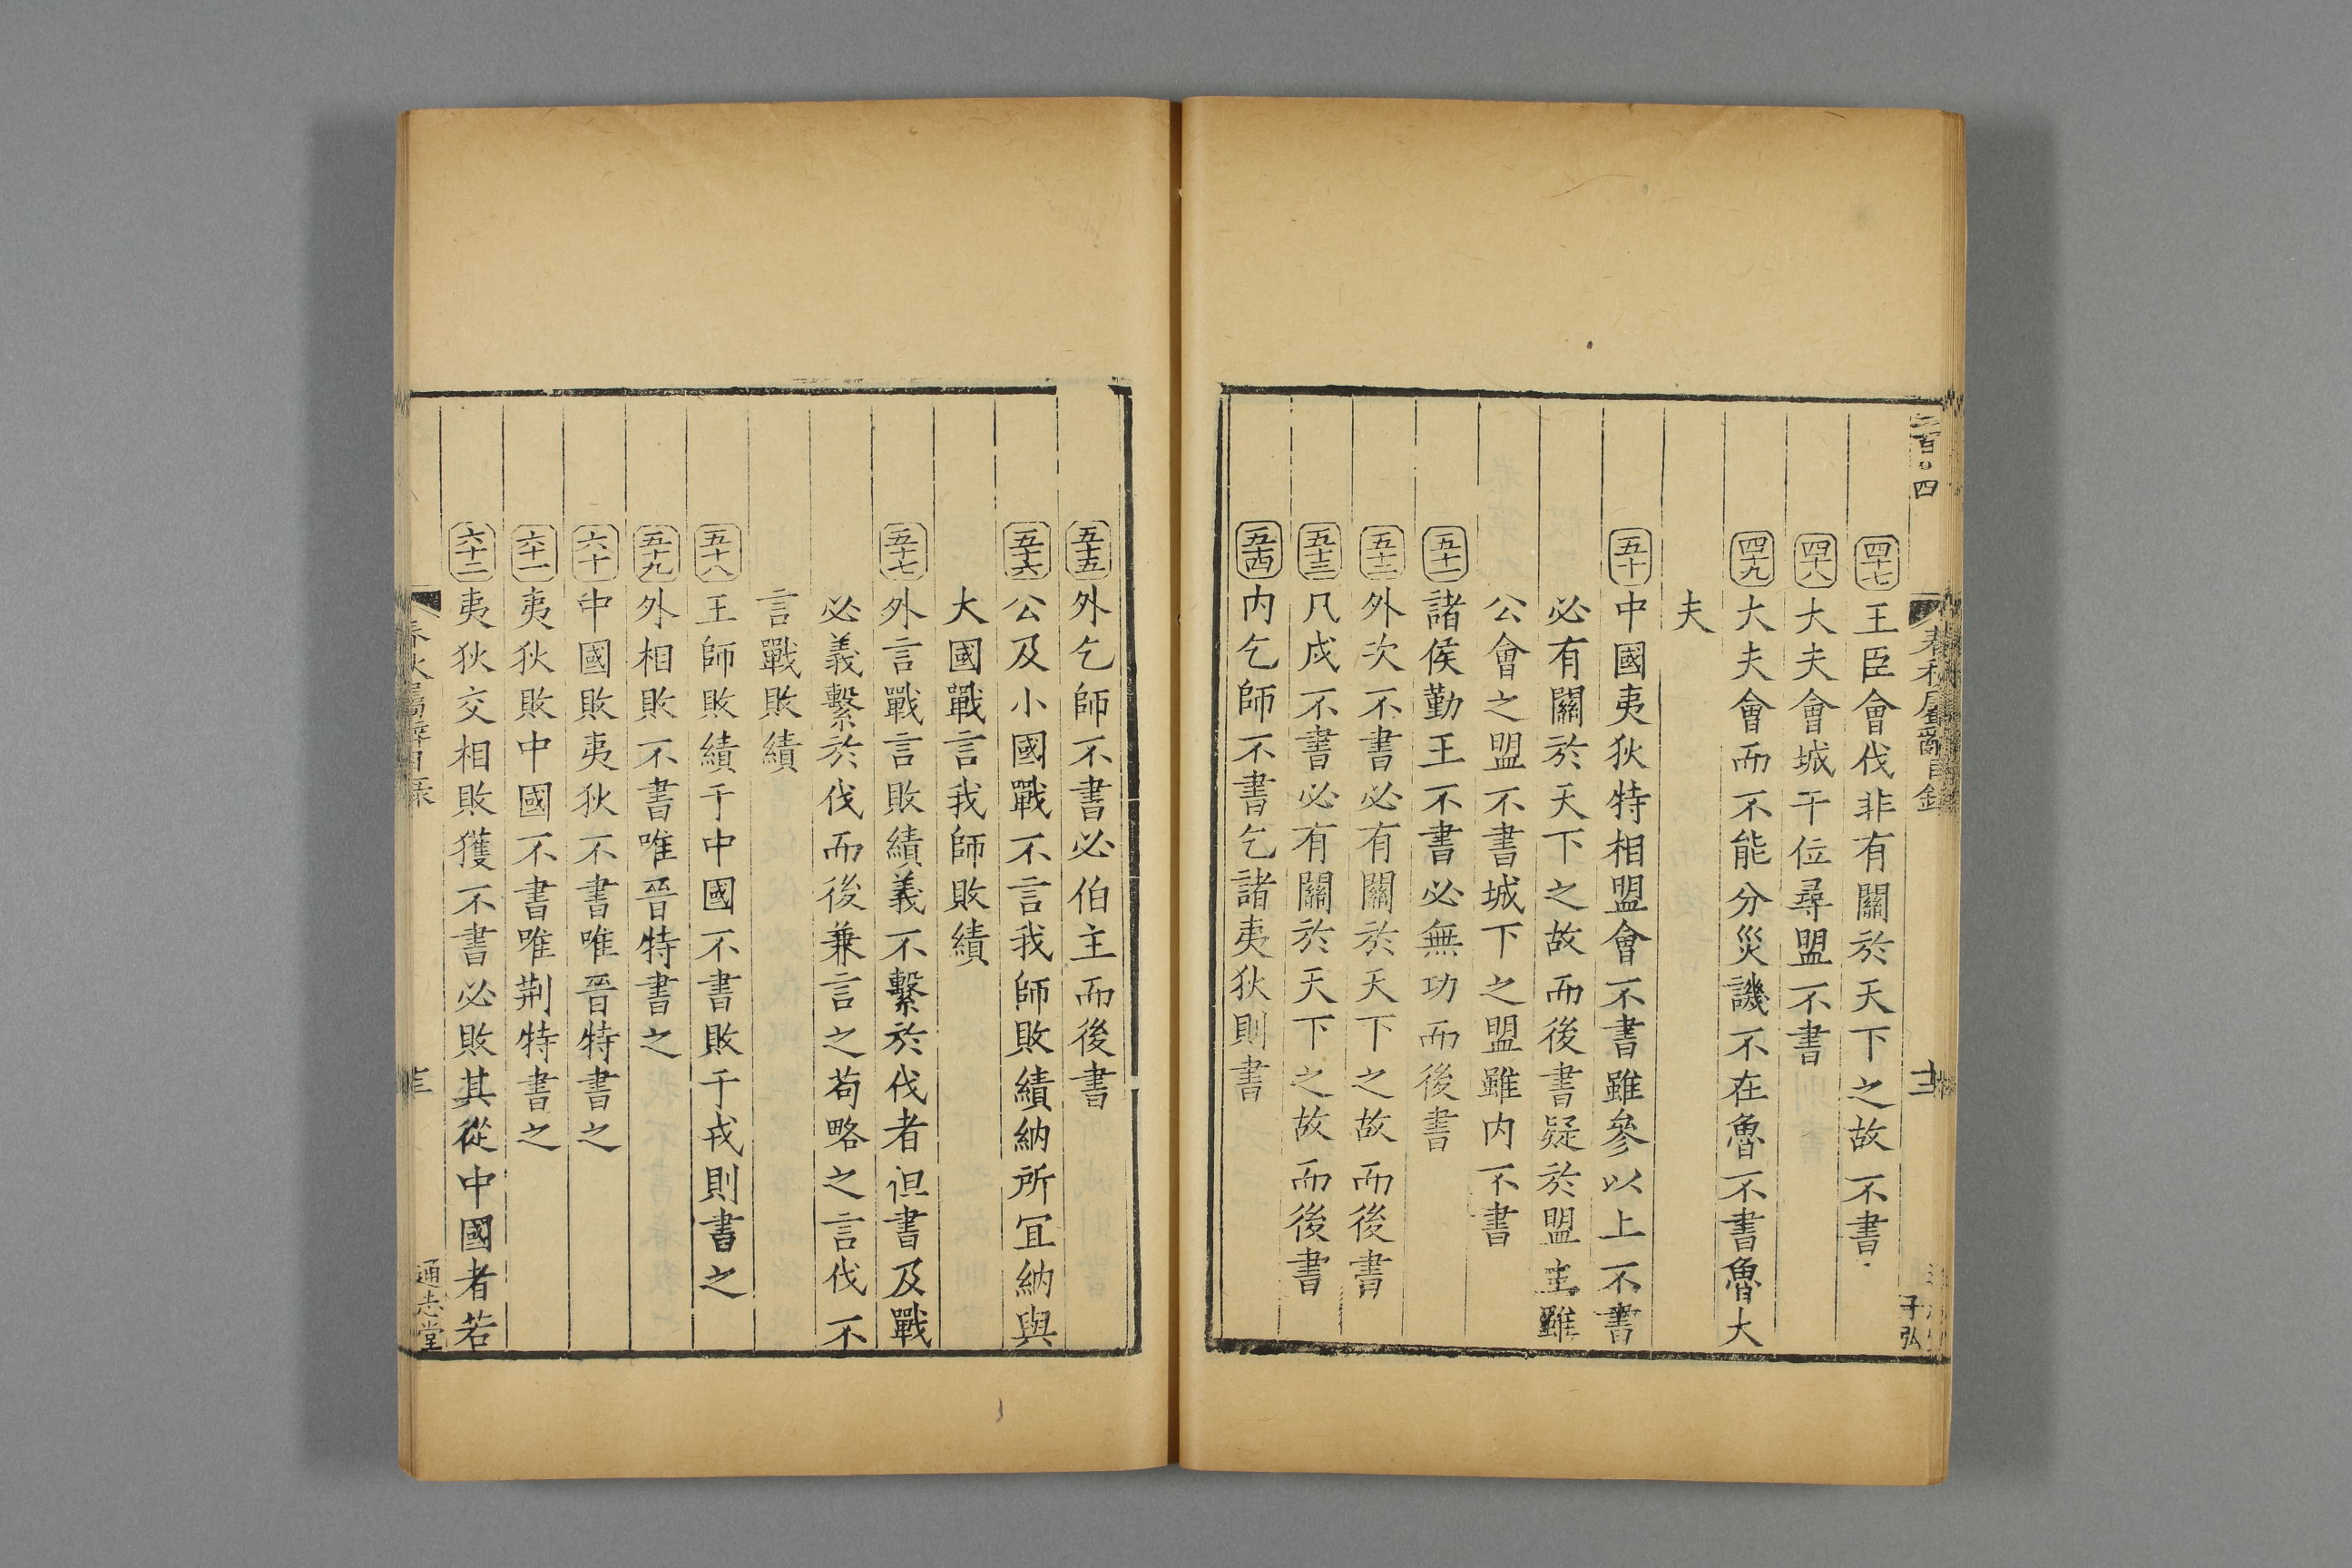 春秋屬辭目錄
子弘
四十七王臣會伐非有關於天下之故不書
四十八大夫會城干位尋盟不書
四十九大夫會而不能分災譏不在魯不書魯大
夫
五十中國夷狄特相盟會不書雖參以上不書
必有關於天下之故而後書疑於盟主雖
公會之盟不書城下之盟雖内不書
五十一諸侯勤王不書必無功而後書
五十二外次不書必有關於天下之故而後書
五十三凡戍不書必有關於天下之故而後書
五十四内乞師不書乞諸夷狄則書
五十五外乞師不書必伯主而後書
五十六公及小國戰不言我師敗績納所宜納與
大國戰言我師敗績
五十七外言戰言敗績義不繫於伐者但書及戰
必義繫於伐而後兼言之苟略之言伐不
言戰敗績
五十八王師敗績于中國不書敗于戎則書之
五十九外相敗不書唯晉特書之
六十中國敗夷狄不書唯晉特書之
六十一夷狄敗中國不書唯荆特書之
六十二夷狄交相敗獲不書必敗其從中國者若
春秋屬辭目錄
通志堂